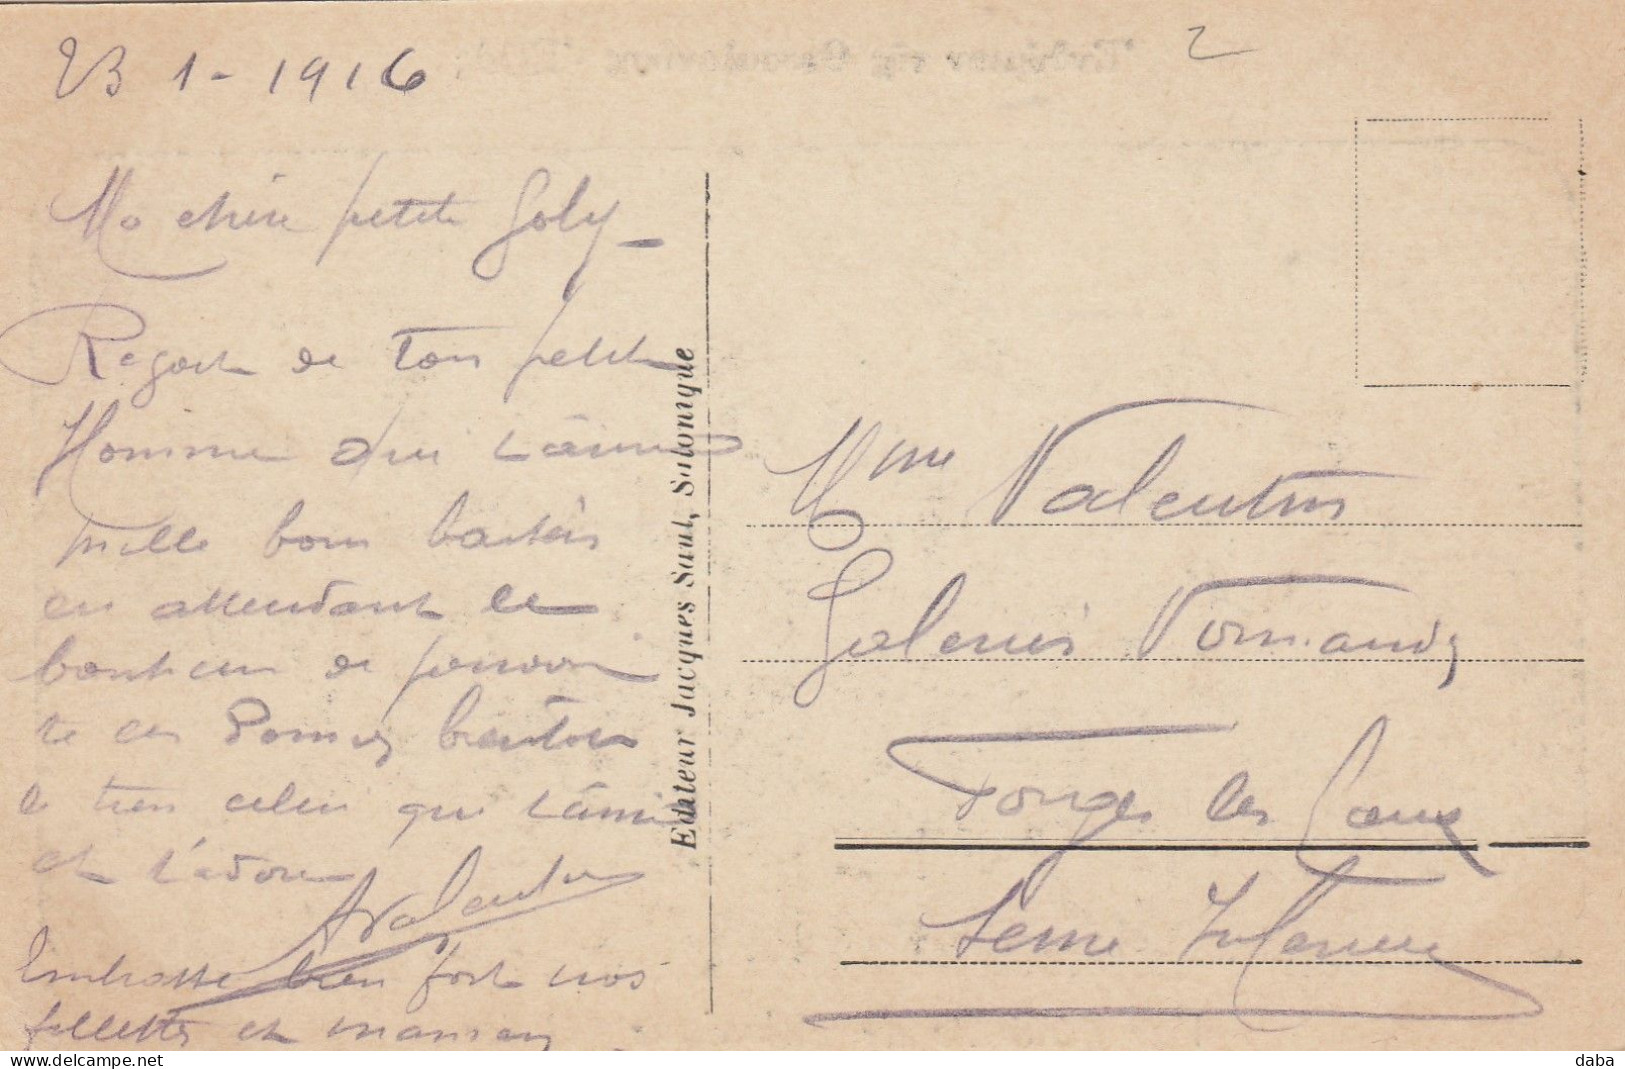 23 1-1916
2
Ma chère petite Goly_
Reçois de ton petit
Homme qui t'aime
mille bons baisers
en attendant le
bonheur de pouvoir
te en donner bientôt
le tien celui qui t'aime
et t'adore
AValentin
Embrasse bien fort nos
fillettes et maman
Editeur Jacques Saul, Salonique
Mme Valentin
Galeries Normandes
Forges les Eaux
Seine Inférieure
daba